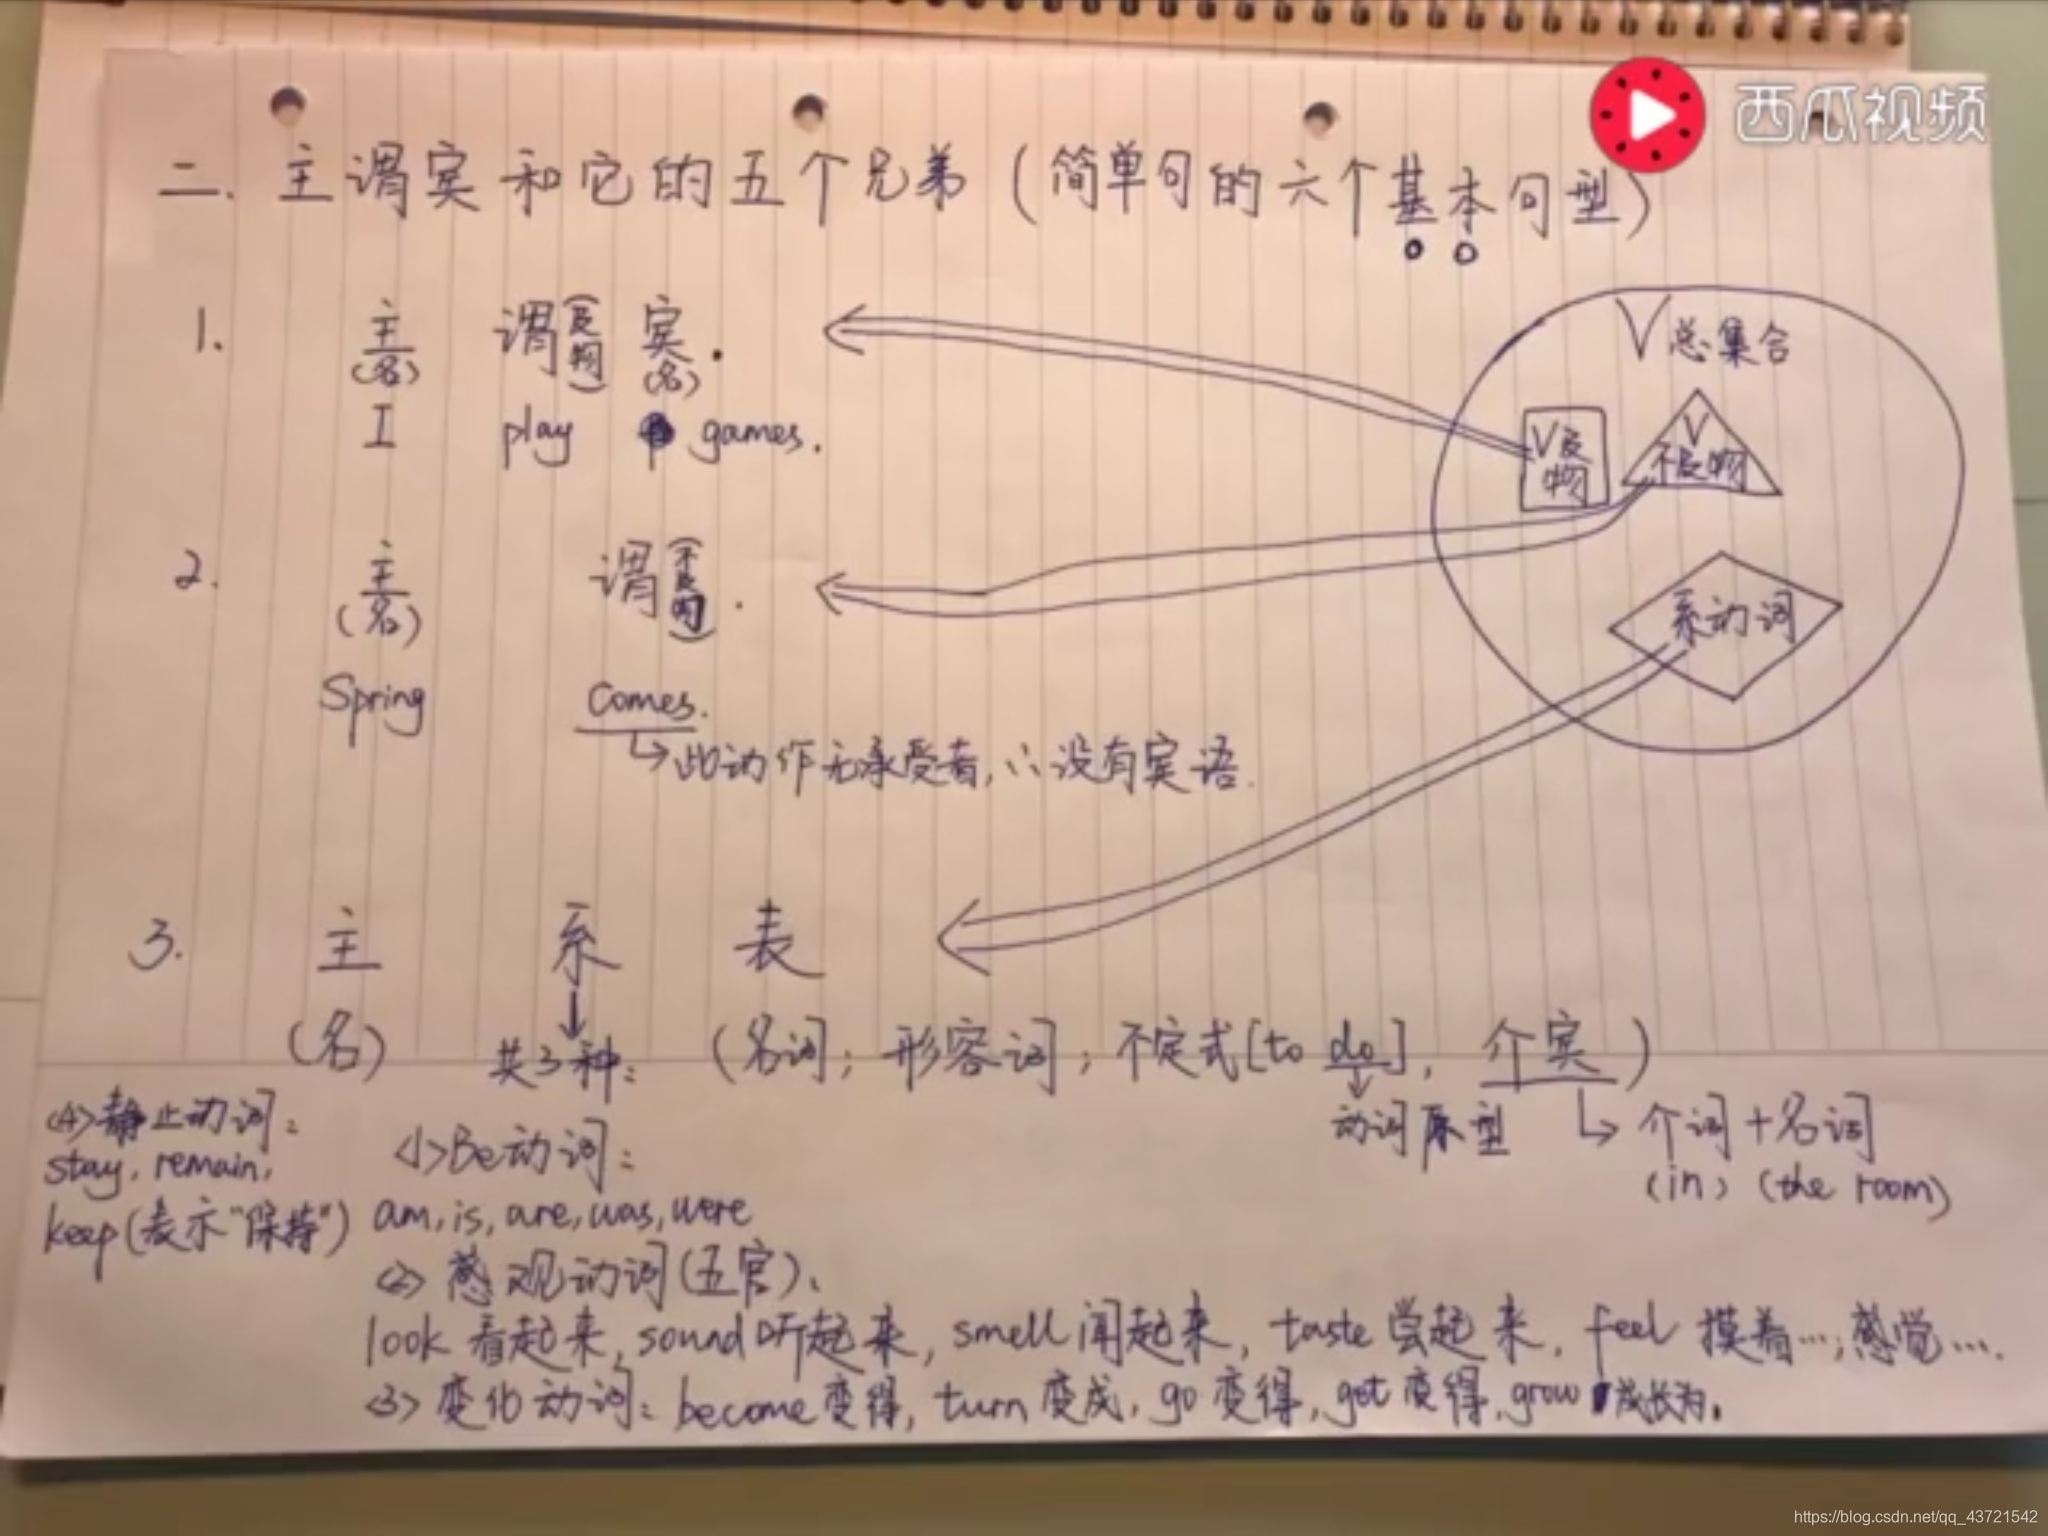 西瓜视频
二. 主谓宾和它的五个兄弟(简单句的六个基本句型)
1. 主(名) 谓(及物) 宾(名).
I play games.
V总集合
V及物
V不及物
系动词
2. 主(名) 谓(不及物).
Spring Comes.
↳此动作无承受者,∴没有宾语.
3. 主 系 表
(名) 共3种: (名词; 形容词; 不定式[to do], 介宾)
动词原型
介词+名词
(in) (the room)
<4>静止动词:
stay, remain,
keep(表示"保持")
<1>Be动词:
am, is, are, was, were
<2>感观动词(五官).
look 看起来, sound 听起来, smell 闻起来, taste 尝起来, feel 摸着…; 感觉….
<3>变化动词: become 变得, turn 变成, go 变得, get 变得, grow 成长为.
https://blog.csdn.net/qq_43721542